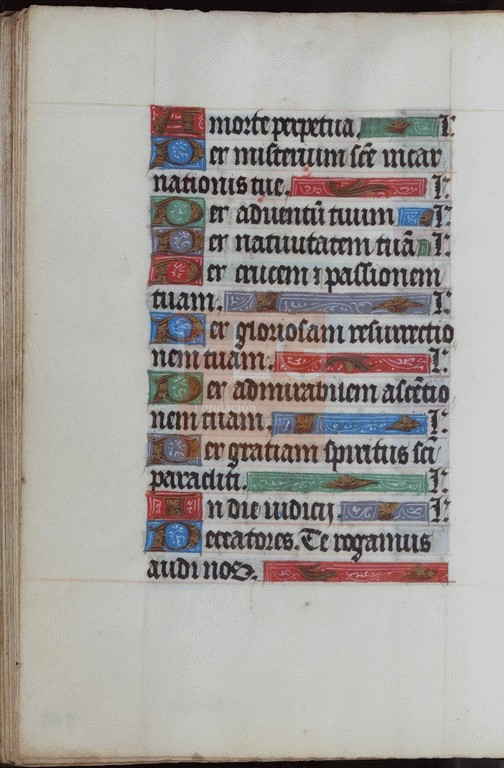 A morte perpetua. l'.
Per misterium scē incar
nationis tue. l'.
Per aduentū tuum l'.
Per natiuitatem tuā l'.
Per crucem ⁊ passionem
tuam. l'.
Per gloriosam resurrectio
nem tuam. l'.
Per admirabilem ascētio
nem tuam. l'.
Per gratiam spiritus sci
paracliti. l'.
In die iudicij l'.
Peccatores. Te rogamus
audi nos.